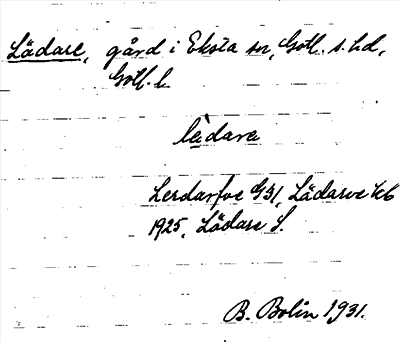 Lädare, gård i Eksta sn, Gotl. s. hd,
Gotl. l.
lädara
Lerdarfve G31, Lädarve Kb
1925, Lädare S.
B. Bolin 1931.